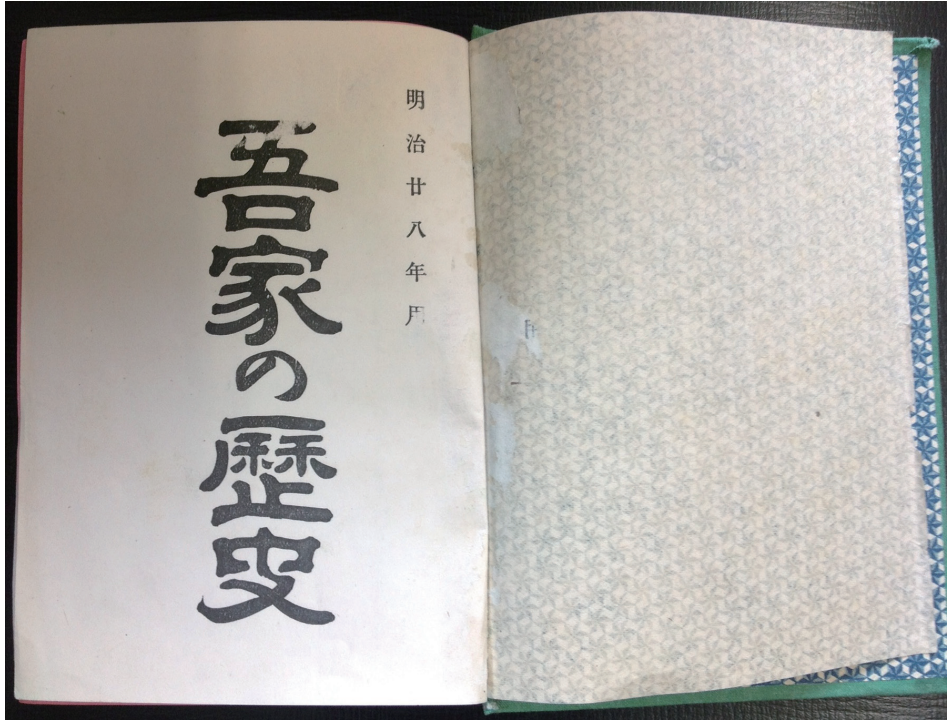 明治廿八年用
吾家の歴史